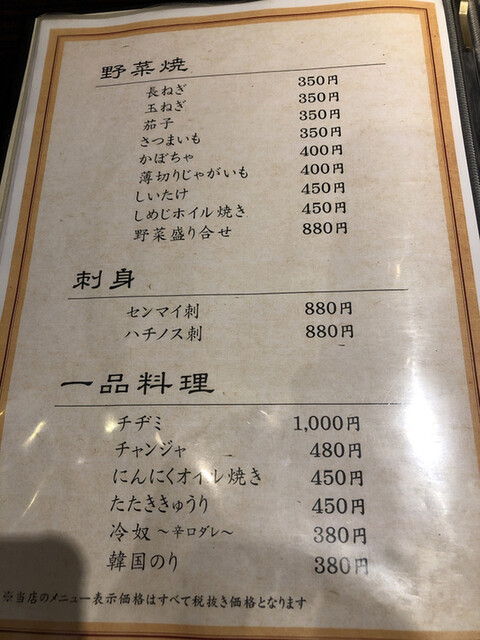 野菜焼
長ねぎ 350円
玉ねぎ 350円
茄子 350円
さつまいも 350円
かぼちゃ 400円
薄切りじゃがいも 400円
しいたけ 450円
しめじホイル焼き 450円
野菜盛り合せ 880円
刺身
センマイ刺 880円
ハチノス刺 880円
一品料理
チヂミ 1,000円
チャンジャ 480円
にんにくオイル焼き 450円
たたききゅうり 450円
冷奴 ～辛口ダレ～ 380円
韓国のり 380円
※当店のメニュー表示価格はすべて税抜き価格となります